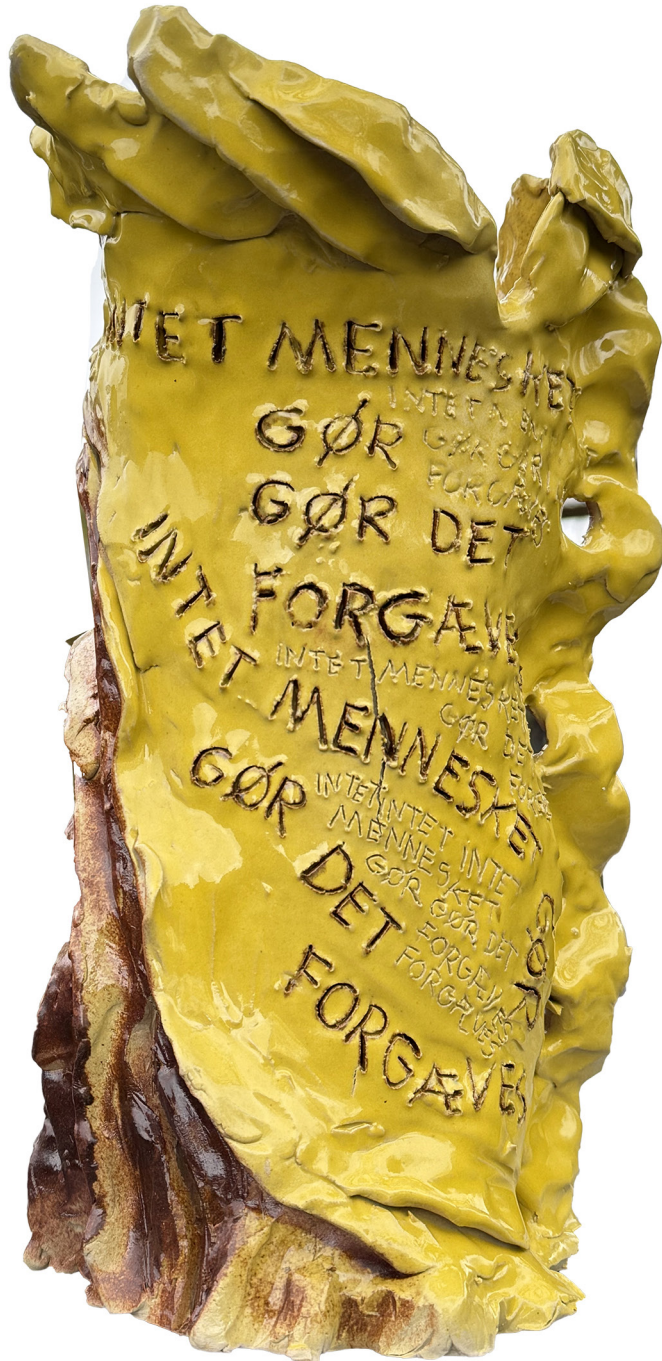 INTET MENNESKET
INTET
GØR
GØR GØR
FORGÆVES
GØR DET
FORGÆVES
INTET MENNESKET
INTET MENNESKET
GØR DET
GØR
INTET INTET INTET
MENNESKET
GØR GØR DET
DET
FORGÆVES
FORGÆVES
GØR
FORGÆVES